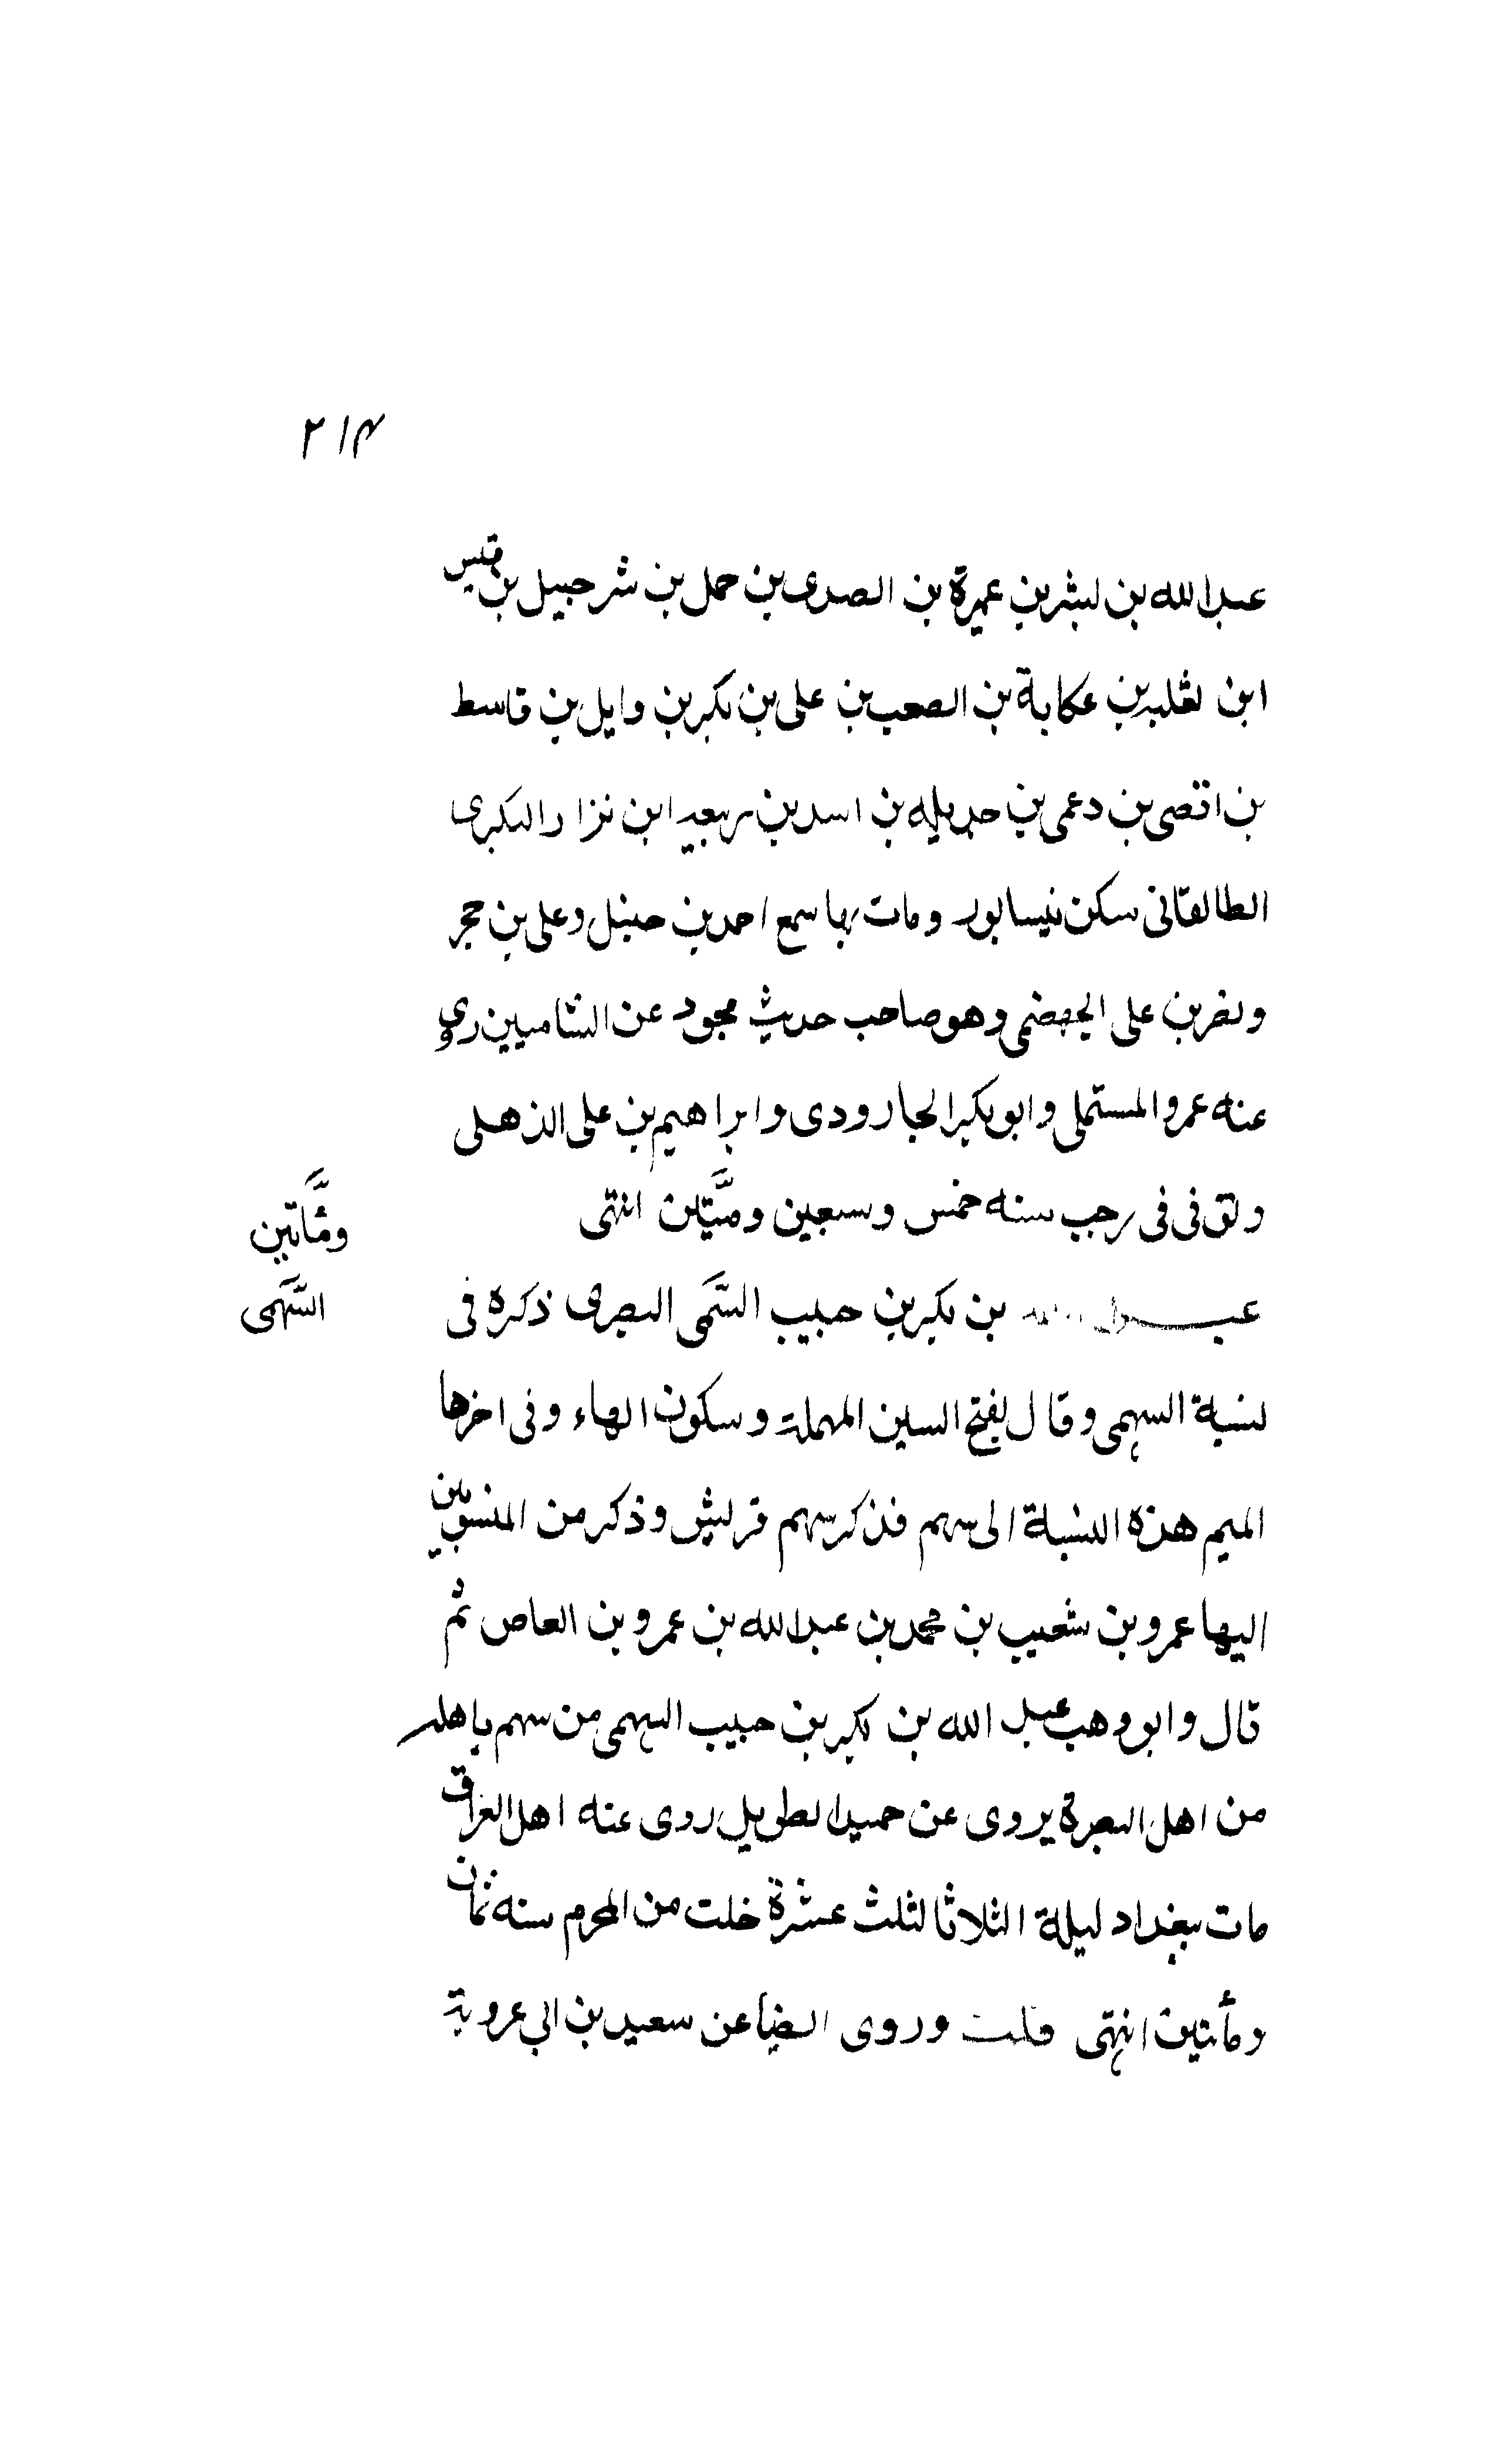 ٢١٤
عبدالله بن بشر بن عميرة بن الصدى بن حمل بن شرحبيل بن قيس
ابن ثعلبه بن عكابة بن الصعب بن على بن بكر بن وايل بن قاسط
بن اقصى بن دعمى بن جديله بن اسد بن ربيعه ابن نزار البكرى
الطالقانى سكن نيسابور ومات بها سمع احمد بن حنبل وعلى بن حجر
ونصر بن على الجهضمى وهو صاحب حديث مجود عن الشاميين روى
عنه عمرو المستملى وابو بكر الجارودى وابراهيم بن على الذهلى
وتوفى فى رجب سنه خمس وسبعين ومئتين انتهى
ومئاتين
عبد الله بن بكر بن حبيب السَّمى البصرى ذكره فى
السَّهمى
نسبة السهمى وقال بفتح السين المهملة وسكون الهاء وفى اخرها
الميم هذه النسبة الى سهم فذكر سهم قريش وذكر من المنسوبين
اليها عمرو بن شعيب بن محمد بن عبدالله بن عمرو بن العاص ثم
قال وابو وهب عبد الله بن بكر بن حبيب السهمى من سهم باهله
من اهل البصرة يروى عن حميد الطويل روى عنه اهل العراق
مات ببغداد ليلة الثلاثا لثلث عشرة خلت من المحرم سنه ثمان
ومأتين انتهى قلت وروى ايضا عن سعيد بن ابى عروبة